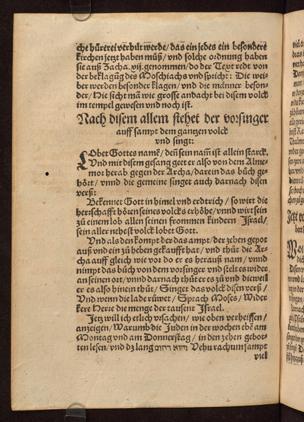 che hürerei verhüt werde/das ein jedes ein besondere
kirchen jetzt haben müß/vnd solche ordnung haben
sie auß Zacha. xij. genommen/do der Text redt von
der beklagüg des Moschiachs vnd spricht: Die wei-
ber werden besonder klagen/vnd die männer beson-
der/Hie sicht mā wie grosse andacht bei disem volck
im tempel gewesen vnd noch ist.
Nach disem allem stehet der vorsinger
auff sampt dem gantzen volck
vnd singt:
Lobet Gottes namē/deñ sein nam ist allein starck.
Vnd mit disem gesang geet er also von dem Alme-
mor herab gegen der Archa/darein das büch ge-
hört/vnnd die gemeine singet auch darnach disen
verß:
Bekennet Gott in himel vnd erdtrich/so wirt die
herrschafft hörē seines volcks erhöhe/vnnd wirt sein
zu einem lob allen seinen frommen kindern Israel/
sein aller nehest volck lobet Gott.
Vnd als den kompt der das ampt der zehen gepot
auß vnd ein zů heben gekaufft hat/vnd thüt die Ar-
cha auff gleich wie vor do er es herauß nam/vnnd
nimpt das büch von dem vorsinger vnd stelt es wider
an seinen ort/vnd darnach thüt er es zů vnd dieweil
er es also hinein thüt/Singet das volck disen verß/
Vnd wenn die lade rüwet/Sprach Moses/Wide
kere Herre die menge der tausent Israel.
Jetz will ich etlich vrsachen/wie oben verheissen/
anzeigen/Warumb die Juden in der wochen ebē am
Montag vnd am Donnerstag/in den zehen gebot-
ten lesen/vnd dz lang והוא רחום Vehu rachum sampt
viel